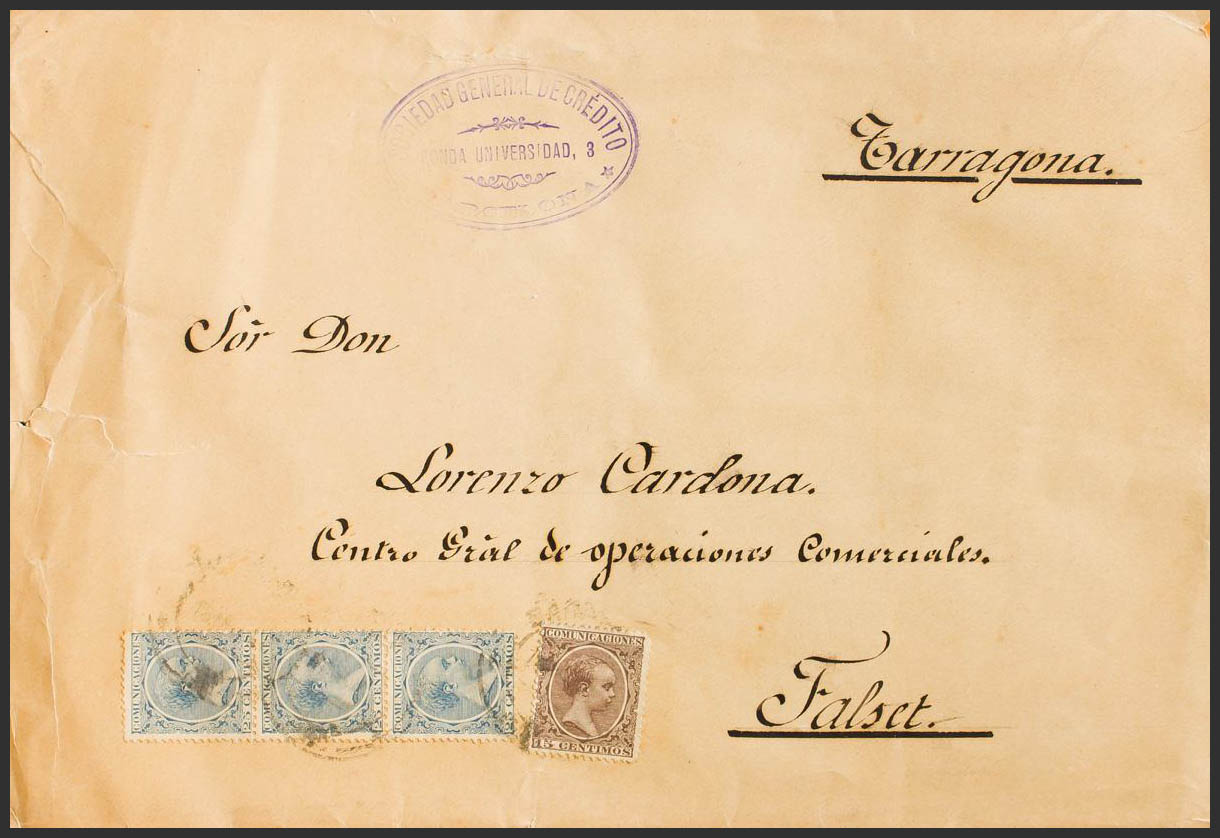 SOCIEDAD GENERAL DE CRÉDITO
RONDA UNIVERSIDAD, 3
Tarragona.
Sör Don
Lorenzo Cardona.
Centro Gräl de operaciones Comerciales.
Falset.
COMUNICACIONES
25 CENTIMOS
COMUNICACIONES
25 CENTIMOS
COMUNICACIONES
25 CENTIMOS
COMUNICACIONES
15 CENTIMOS